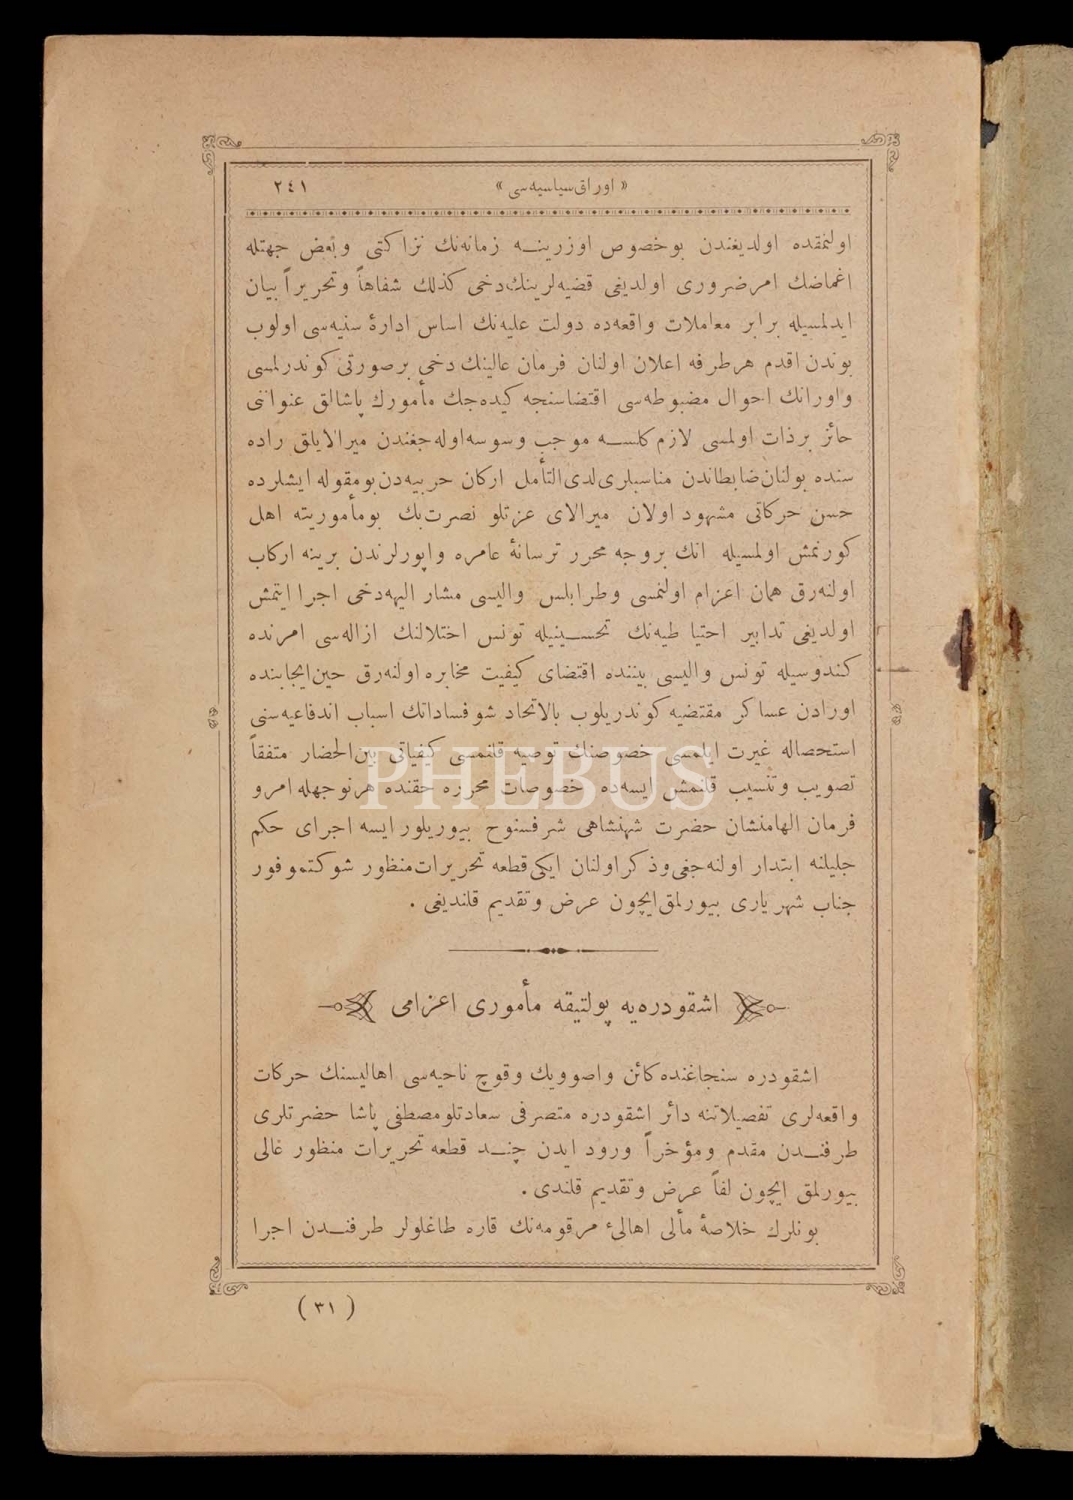 « اوراق سیاسیه‌سی » ٢٤١
اولنمقده اولدیغندن بو خصوص اوزرینه زمانه‌نك نزاكتی وبعض جهتله
اغماضك امر ضروری اولدیغی قضیه‌لرینك دخی كذلك شفاهاً وتحریراً بیان
ایدلمسیله برابر معاملات واقعه‌ده دولت علیه‌نك اساس ادارۀ سنیه‌سی اولوب
بوندن اقدم هر طرفه اعلان اولنان فرمان عالینك دخی بر صورتی كوندرلمسی
واورانك احوال مضبوطه‌سی اقتضاسنجه كیده‌جك مأمورك پاشالق عنواننی
حائز بر ذات اولمسی لازم كلسه موجب وسوسه اوله‌جغندن میرالایلق راده
سنده بولنان ضابطاندن مناسبلری لدی التأمل اركان حربیه‌دن بومقوله ایشلرده
حسن حركاتی مشهود اولان میرالای عزتلو نصرت بك بومأموریته اهل
كورنمش اولمسیله انك بروجه محرر ترسانۀ عامره واپورلرندن برینه اركاب
اولنه‌رق همان اعزام اولنمسی وطرابلس والیسی مشار الیهه دخی اجرا ایتمش
اولدیغی تدابیر احتیاطیه‌نك تحسینیله تونس اختلالنك ازاله‌سی امرنده
كندوسیله تونس والیسی بیننده اقتضای كیفیت مخابره اولنه‌رق حین ایجابنده
اورادن عساكر مقتضیه كوندریلوب بالاتحاد شو فساداتك اسباب اندفاعیه‌سنی
استحصاله غیرت ایلمسی خصوصنك توصیه قلنمسی كیفیاتی بین الحضار متفقاً
تصویب وتنسیب قلنمش ایسه‌ده خصوصات محرره حقنده هر نوجهله امر و
فرمان الهامنشان حضرت شهنشاهی شرفسنوح بیوریلور ایسه اجرای حكم
جلیلنه ابتدار اولنه‌جغی وذكر اولنان ایكی قطعه تحریرات منظور شوكتموفور
جناب شهریاری بیورلمق ایچون عرض وتقدیم قلندیغی .
اشقودره‌یه پولتیقه مأموری اعزامی
اشقودره سنجاغنده كائن واصوویك وقوچ ناحیه‌سی اهالیسنك حركات
واقعه‌لری تفصیلاتنه دائر اشقودره متصرفی سعادتلو مصطفی پاشا حضرتلری
طرفندن مقدم ومؤخراً ورود ایدن چند قطعه تحریرات منظور عالی
بیورلمق ایچون لفاً عرض وتقدیم قلندی .
بونلرك خلاصۀ مألی اهالیٔ مرقومه‌نك قاره طاغلولر طرفندن اجرا
( ٣١ )
PHEBUS